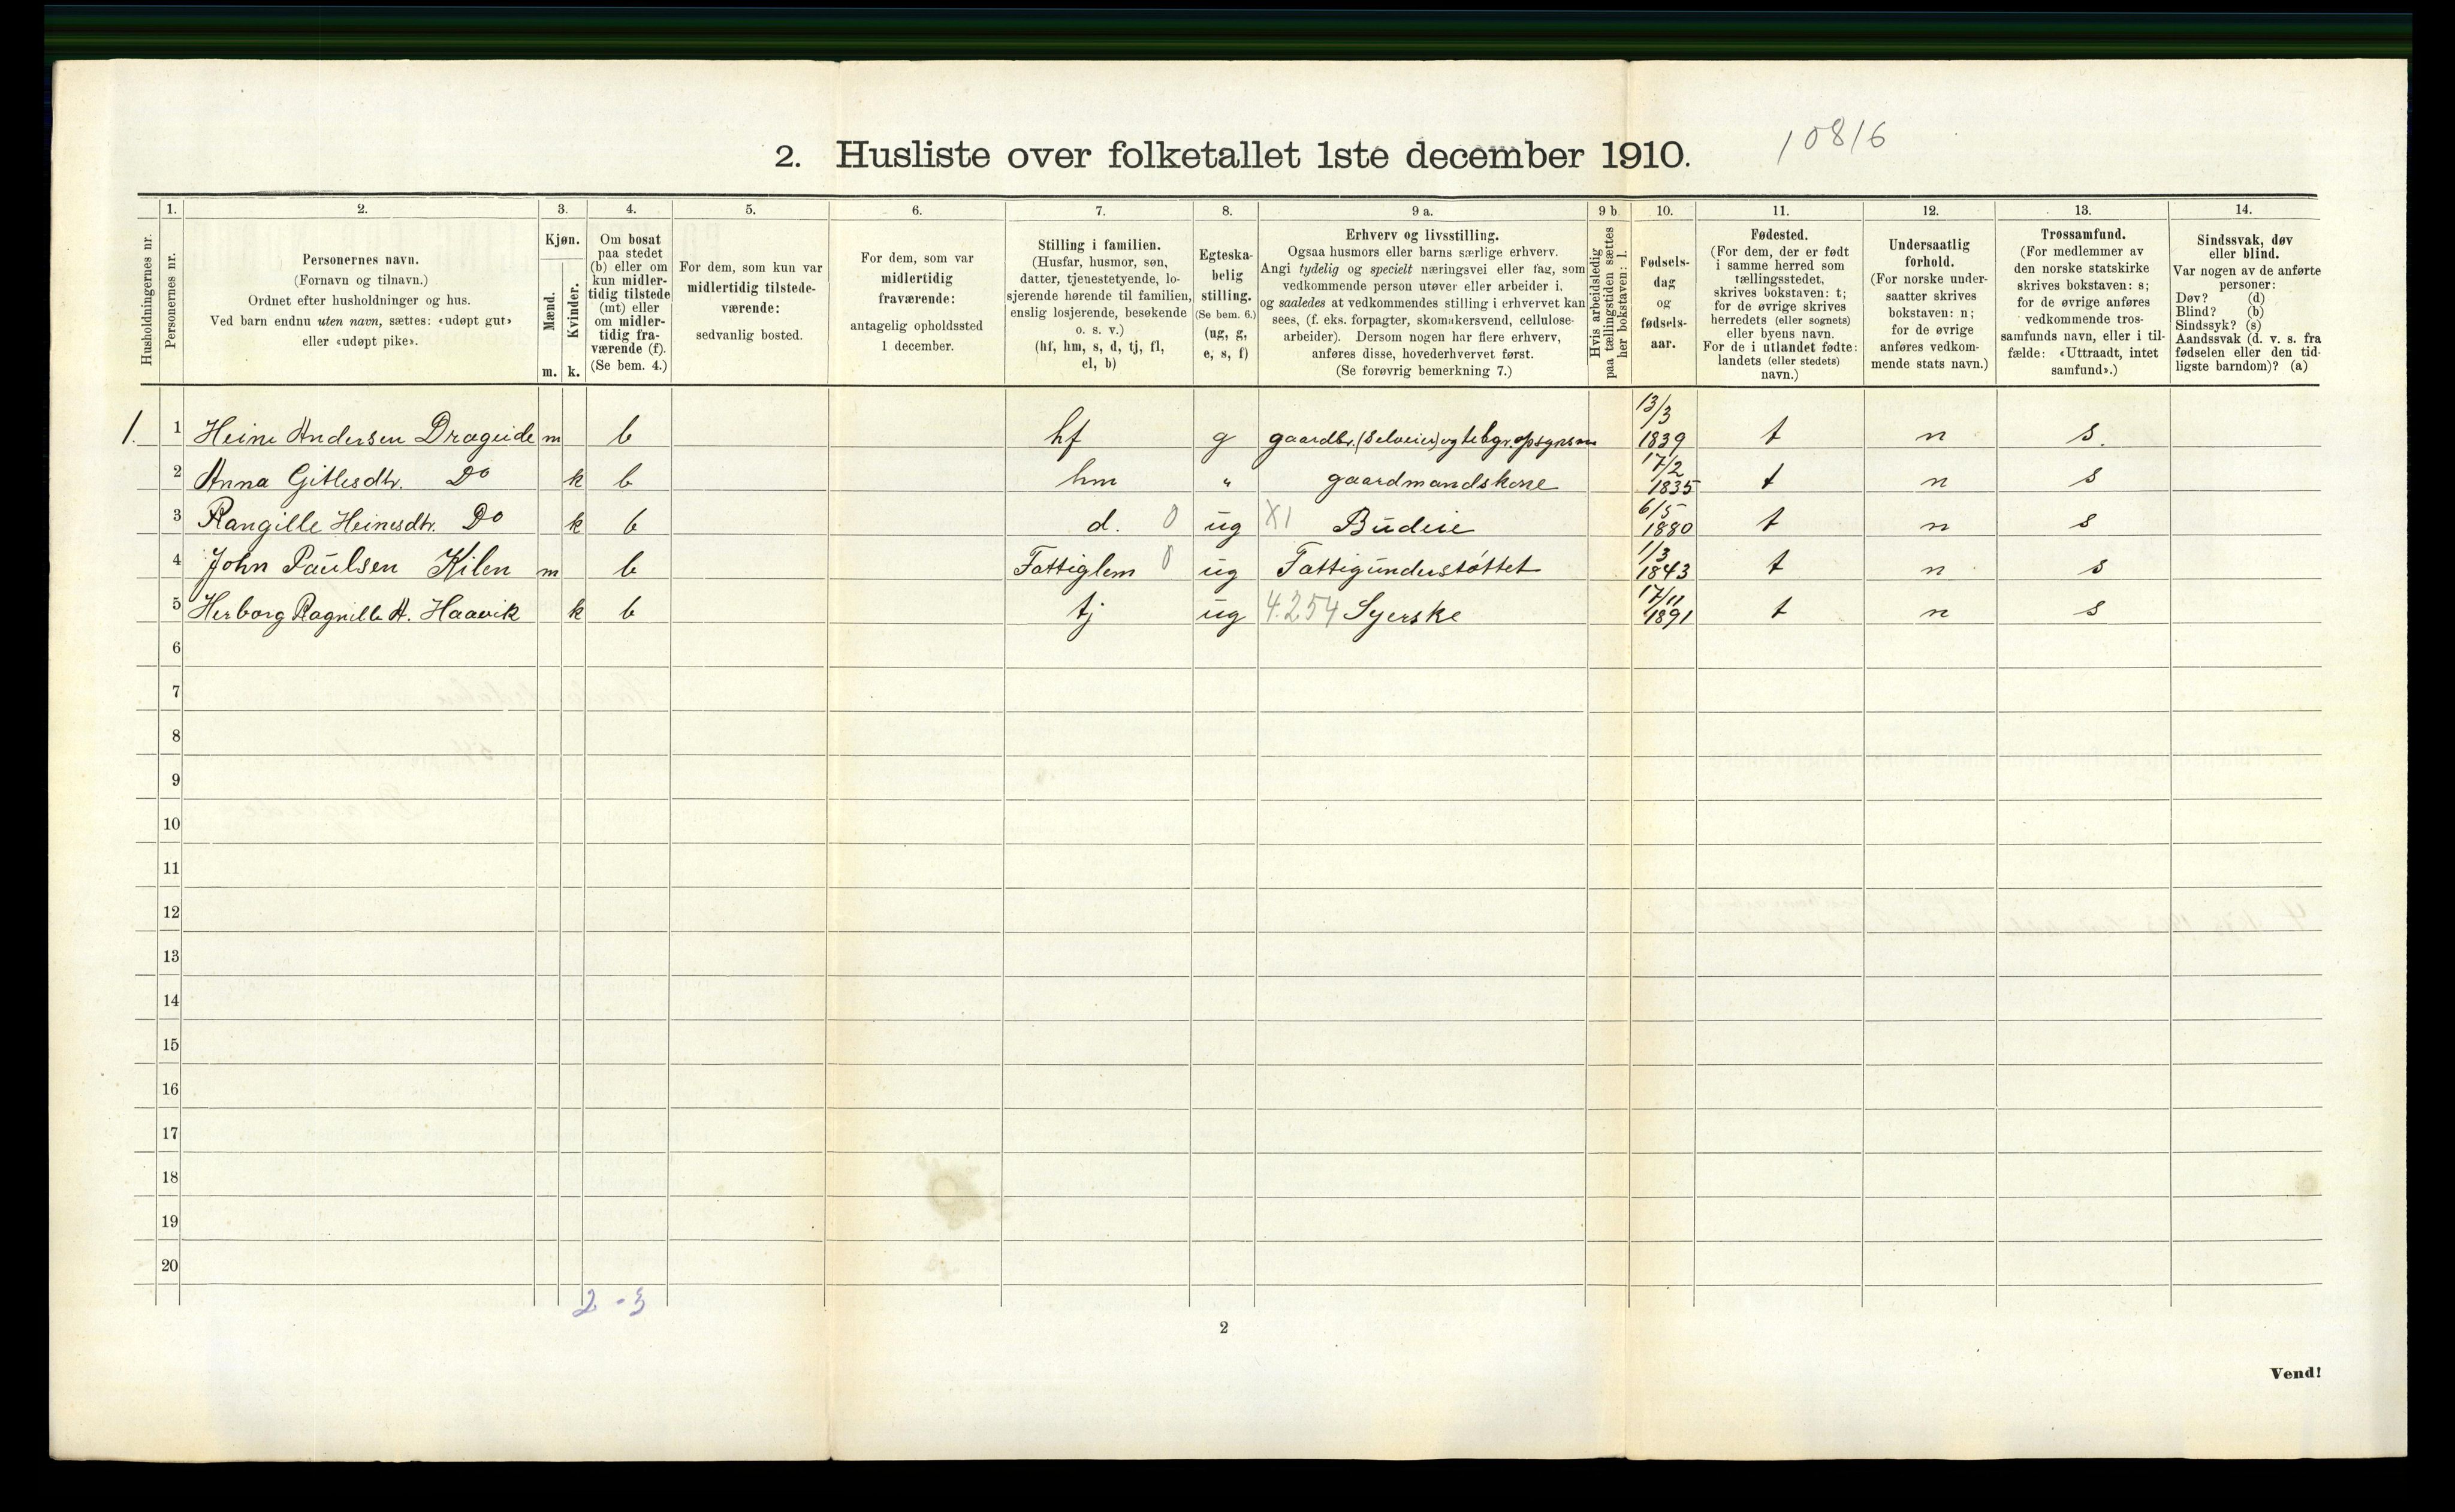 2. Husliste over folketallet 1ste december 1910.
10816
1. 2. 3. 4. 5. 6. 7. 8. 9 a. 9 b. 10. 11. 12. 13. 14.
Husholdningernes nr.
Personernes nr.
Personernes navn.
(Fornavn og tilnavn.)
Ordnet efter husholdninger og hus.
Ved barn endnu uten navn, sættes: «udøpt gut»
eller «udøpt pike».
Kjøn.
Mænd.
Kvinder.
m. k.
Om bosat
paa stedet
(b) eller om
kun midler-
tidig tilstede
(mt) eller
om midler-
tidig fra-
værende (f).
(Se bem. 4.)
For dem, som kun var
midlertidig tilstede-
værende:
sedvanlig bosted.
For dem, som var
midlertidig
fraværende:
antagelig opholdssted
1 december.
Stilling i familien.
(Husfar, husmor, søn,
datter, tjenestetyende, lo-
sjerende hørende til familien,
enslig losjerende, besøkende
o. s. v.)
(hf, hm, s, d, tj, fl,
el, b)
Egteska-
belig
stilling.
(Se bem. 6.)
(ug, g,
e, s, f)
Erhverv og livsstilling.
Ogsaa husmors eller barns særlige erhverv.
Angi tydelig og specielt næringsvei eller fag, som
vedkommende person utøver eller arbeider i,
og saaledes at vedkommendes stilling i erhvervet kan
sees, (f. eks. forpagter, skomakersvend, cellulose-
arbeider). Dersom nogen har flere erhverv,
anføres disse, hovederhvervet først.
(Se forøvrig bemerkning 7.)
Hvis arbeidsledig
paa tællingstiden sættes
her bokstaven: l.
Fødsels-
dag
og
fødsels-
aar.
Fødested.
(For dem, der er født
i samme herred som
tællingsstedet,
skrives bokstaven: t;
for de øvrige skrives
herredets (eller sognets)
eller byens navn.
For de i utlandet fødte:
landets (eller stedets)
navn.)
Undersaatlig
forhold.
(For norske under-
saatter skrives
bokstaven: n;
for de øvrige
anføres vedkom-
mende stats navn.)
Trossamfund.
(For medlemmer av
den norske statskirke
skrives bokstaven: s;
for de øvrige anføres
vedkommende tros-
samfunds navn, eller i til-
fælde: «Uttraadt, intet
samfund».)
Sindssvak, døv
eller blind.
Var nogen av de anførte
personer:
Døv? (d)
Blind? (b)
Sindssyk? (s)
Aandssvak (d. v. s. fra
fødselen eller den tid-
ligste barndom)? (a)
1. 1 Heine Andersen Drageide m b hf g gaardbr. (Selveier) og telegr. opsynsm 13/3 1839 t n s.
2 Anna Gitlesdtr. Do k b hm " gaardmandskone 17/2 1835 t n s
3 Rangille Heinesdtr. Do k b d. 0 ug X1 Budeie 6/5 1880 t n s
4 John Paulsen Kilen m b Fattiglem 0 ug Fattigunderstøttet 1/3 1843 t n s
5 Herborg Ragnille A. Haavik k b tj ug 4.254 Syerske 17/11 1891 t n s
6
7
8
9
10
11
12
13
14
15
16
17
18
19
20
2 - 3
2
Vend!